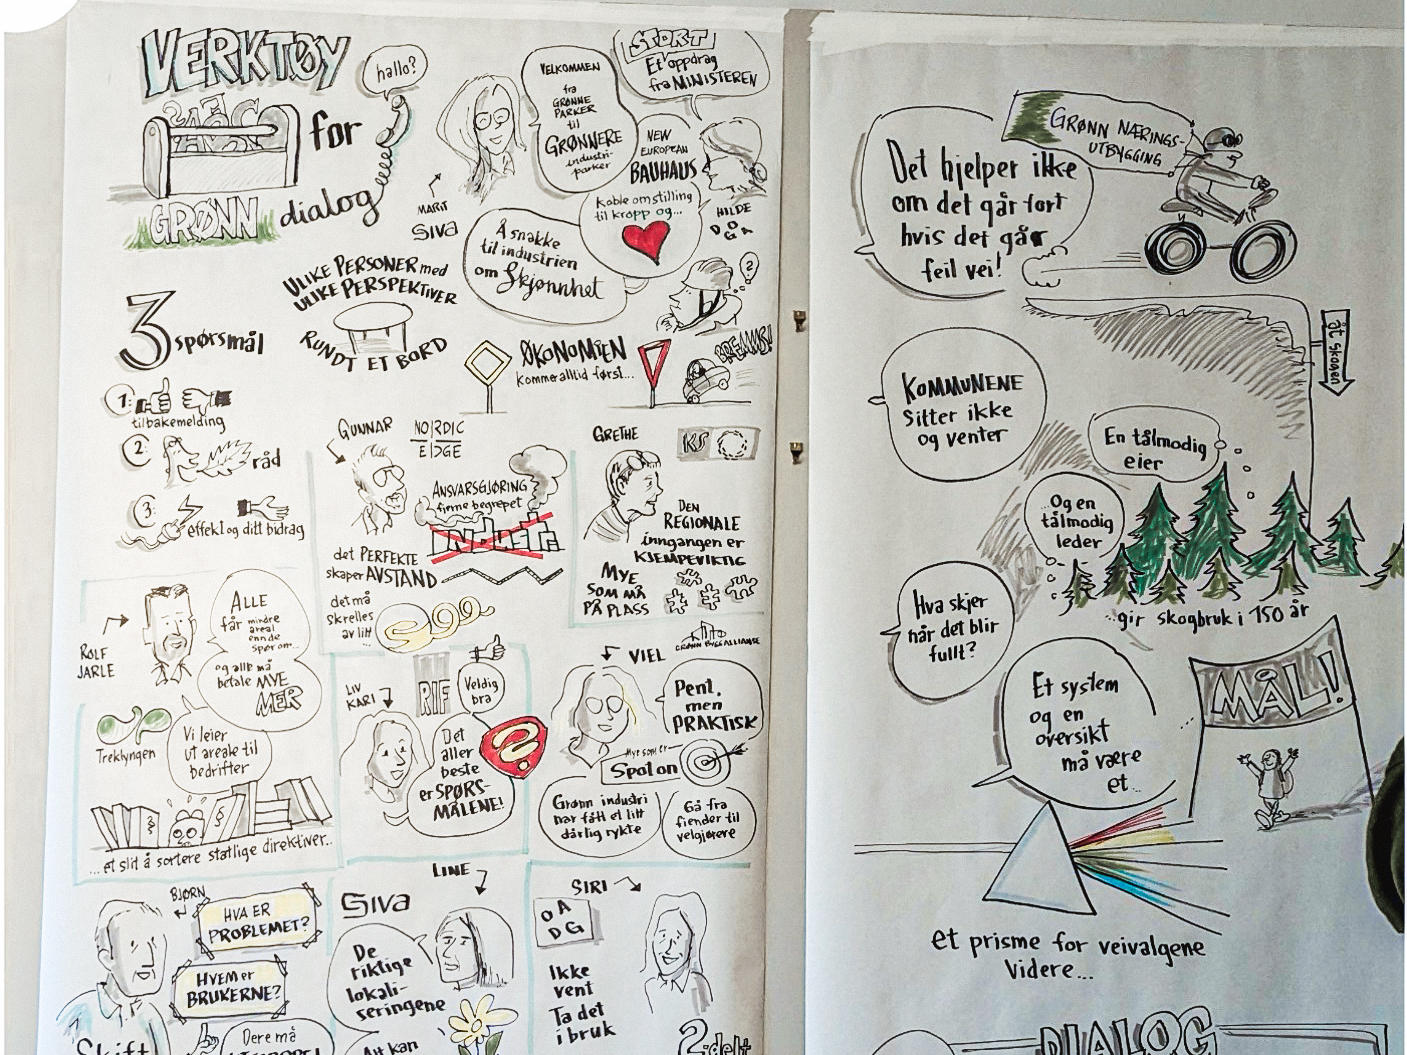 VERKTØY
for
GRØNN dialog
hallo?
MARIT
SIVA
VELKOMMEN
fra
GRØNNE
PARKER
til
GRØNNERE
industri-
parker
STORT
Et oppdrag
fra MINISTEREN
NEW
EUROPEAN
BAUHAUS
Koble omstilling
til kropp og...
HILDE
DOGA
Å snakke
til industrien
om Skjønnhet
ULIKE PERSONER med
ULIKE PERSPEKTIVER
RUNDT ET BORD
3 spørsmål
1:
tilbakemelding
2:
råd
3:
effekt og ditt bidrag
ØKONOMIEN
kommer alltid først...
?
GUNNAR
NORDIC
EDGE
ANSVARSGJØRING
finne begrepet
Industri
det PERFEKTE
skaper AVSTAND
det må
skrelles
av litt
GRETHE
KS
DEN
REGIONALE
inngangen er
KJEMPEVIKTIG
MYE
SOM MÅ
PÅ PLASS
ROLF
JARLE
ALLE
får mindre
areal
enn de
spør om...
og alle må
betale MYE
MER
Trekløyngen
Vi leier
ut areale til
bedrifter
§
...et slit å sortere statlige direktiver...
LIV
KARI
RIF
Veldig
bra
Det
aller
beste
er SPØRS-
MÅLENE!
?
VIEL
GRØNN BYGGALLIANSE
Pent,
men
PRAKTISK
Mye som er
Spot on
Grønn industri
har fått et litt
dårlig rykte
Gå fra
fiender til
velgjørere
BJØRN
HVA ER
PROBLEMET?
HVEM er
BRUKERNE?
Skift
Dere må
LINE
Siva
De
riktige
lokali-
seringene
Alt kan
SIRI
DOGA
Ikke
vent
Ta det
i bruk
2-delt
GRØNN NÆRINGS-
UTBYGGING
Det hjelper ikke
om det går fort
hvis det går
feil vei!
åt skogen
KOMMUNENE
Sitter ikke
og venter
En tålmodig
eier
...Og en
tålmodig
leder
...gir skogbruk i 150 år
Hva skjer
når det blir
fullt?
Et system
og en
oversikt
må være
et...
MÅL!
et prisme for veivalgene
videre...
DIALOG